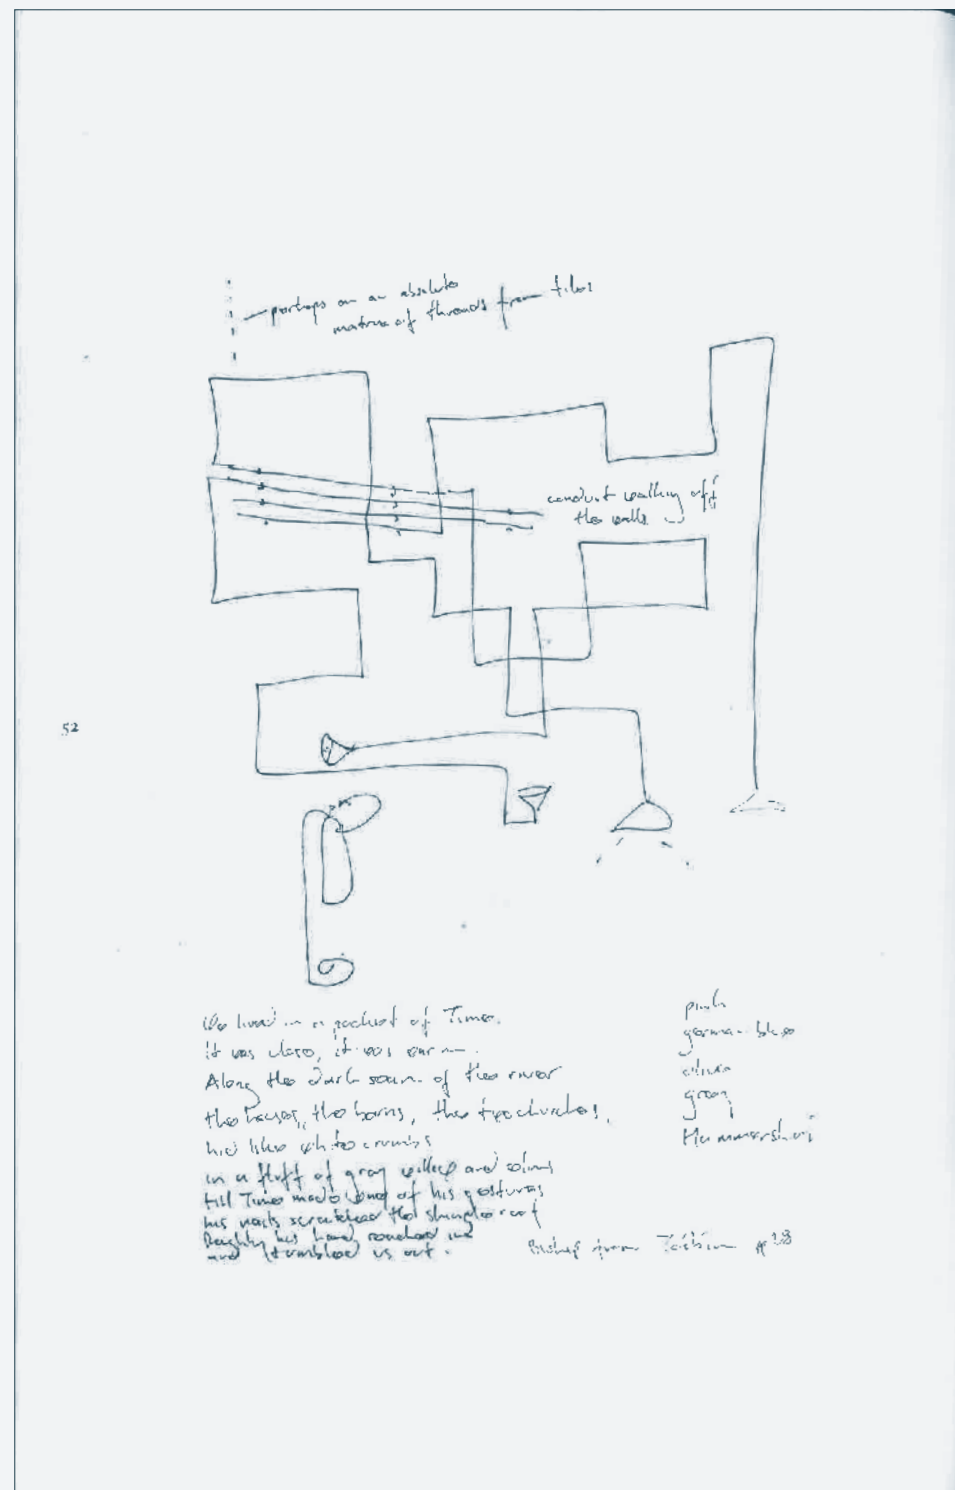 perhaps on an absolute
matrix of threads from tiles
conduit walking off
the walls
52
We lived in a pocket of Time.
It was close, it was warm.
Along the dark seam of the river
the houses, the barns, the two churches,
hid like white crumbs
in a fluff of gray willows and elms
till Time made one of his gestures
his nails scratched the shingled roof
Roughly his hand reached in
and tumbled us out.
Bishop from Tóibín p 28
pink
german blue
olive
grey
Hammershøi